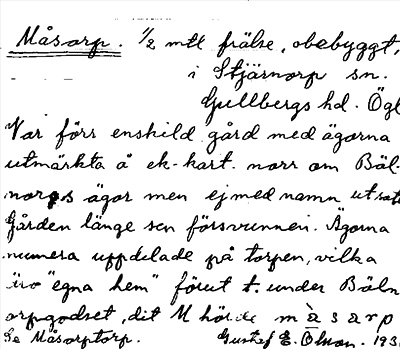 Måsorp. 1/2 mtl frälse, obebyggt,
i Stjärnorp sn.
Gullbergs hd. Ögl
Var förr enskild gård med ägorna
utmärkta å ek-kart. norr om Bäl-
norps ägor men ej med namn utsatt
Gården länge sen försvunnen. Ägorna
numera uppdelade på torpen, vilka
äro "egna hem" förut t. under Bäln
orpgodset, dit M hörde màsarp
Se Måsorptorp. Gustaf E. Olson. 193